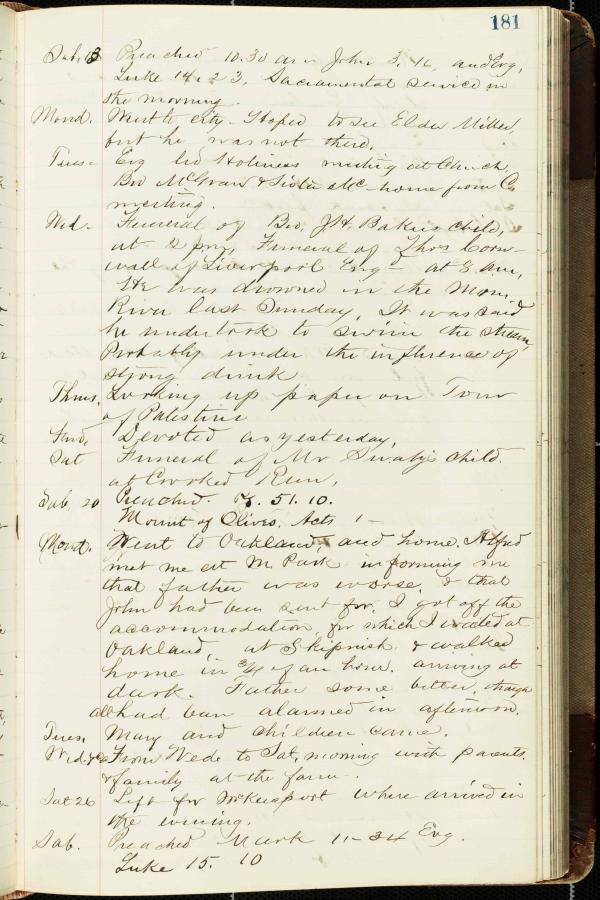 181
Sab. 13 Preached 10.30 am John 3. 16, and Evg,
Luke 14. 23, Sacramental service in
the morning.
Mond. Went to city - Hoped to see Elder Miller,
but he was not there.
Tues. Evg led Holiness meeting at Church,
Bro McGraw & Sister Mc- home from Co
meeting.
Wed. Funeral of Bro. J.H. Bakers child,
at 2 pm, Funeral of Thos Corn-
wall of Liverpool Eng- at 8 am,
He was drowned in the Mon.
River last Sunday, It was said
he undertook to swim the stream,
Probably under the influence of
strong drink
Thurs. Looking up paper on Tour
of Palestine
Frid. Devoted as yesterday,
Sat Funeral of Mr child
at Crooked Run,
Sab, 20 Preached. Ps. 51. 10.
Mount of Olives. Acts 1 -
Mond. Went to Oakland, and home. Alfred
met me at M. Park informing me
that father was worse, & that
John had been sent for. I got off the
accommodation, for which I waited at
Oakland, at Skipnish & walked
home in 3/4 of an hour. arriving at
dark. Father some better, though
all had been alarmed in afternoon.
Tues. Mary and children came.
Wed. &c From Wed. to Sat. morning with parents.
& family at the farm.
Sat 26 Left for McKeesport where arrived in
the evening.
Sab. Preached Mark 11-34 Evg.
Luke 15. 10